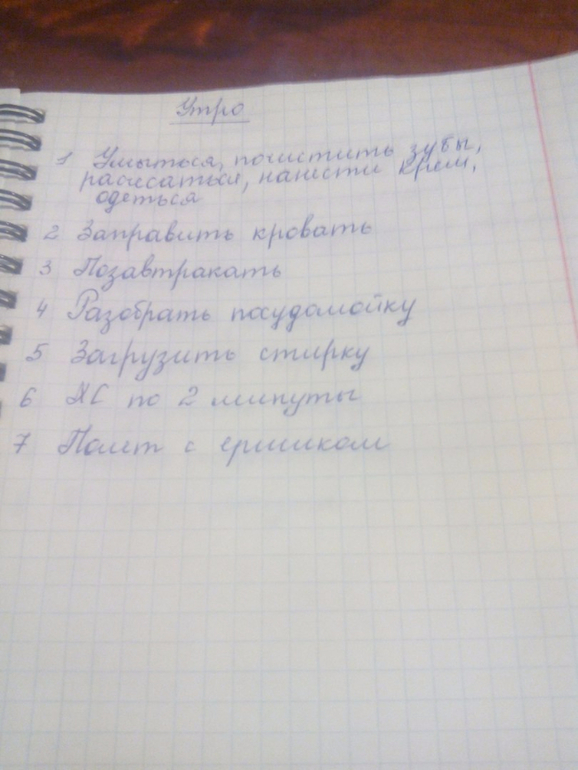 Утро
1 Умыться, почистить зубы,
расчесаться, нанести крем,
одеться
2 Заправить кровать
3 Позавтракать
4 Разобрать посудомойку
5 Загрузить стирку
6 ХС по 2 минуты
7 Полет с ершиком